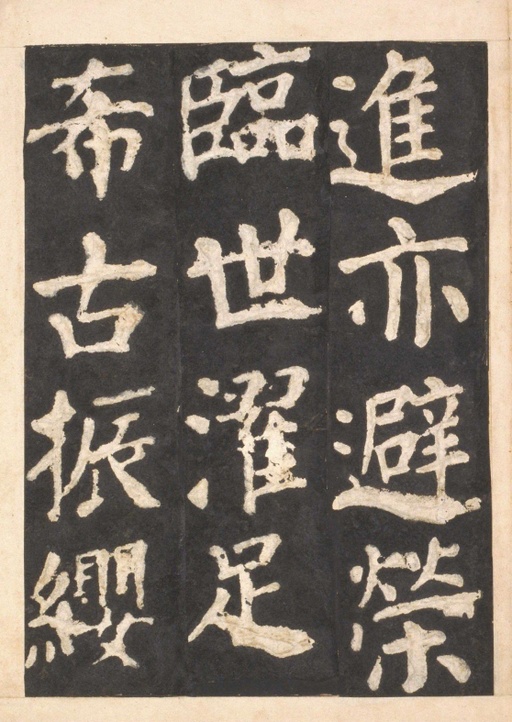 進亦避榮
臨世濯足
希古振纓